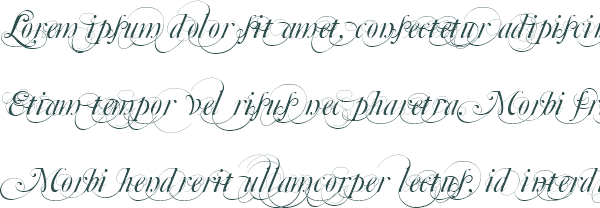 Lorem ipsum dolor sit amet, consectetur adipiscin
Etiam tempor vel risus nec pharetra. Morbi fr
Morbi hendrerit ullamcorper lectus, id interd